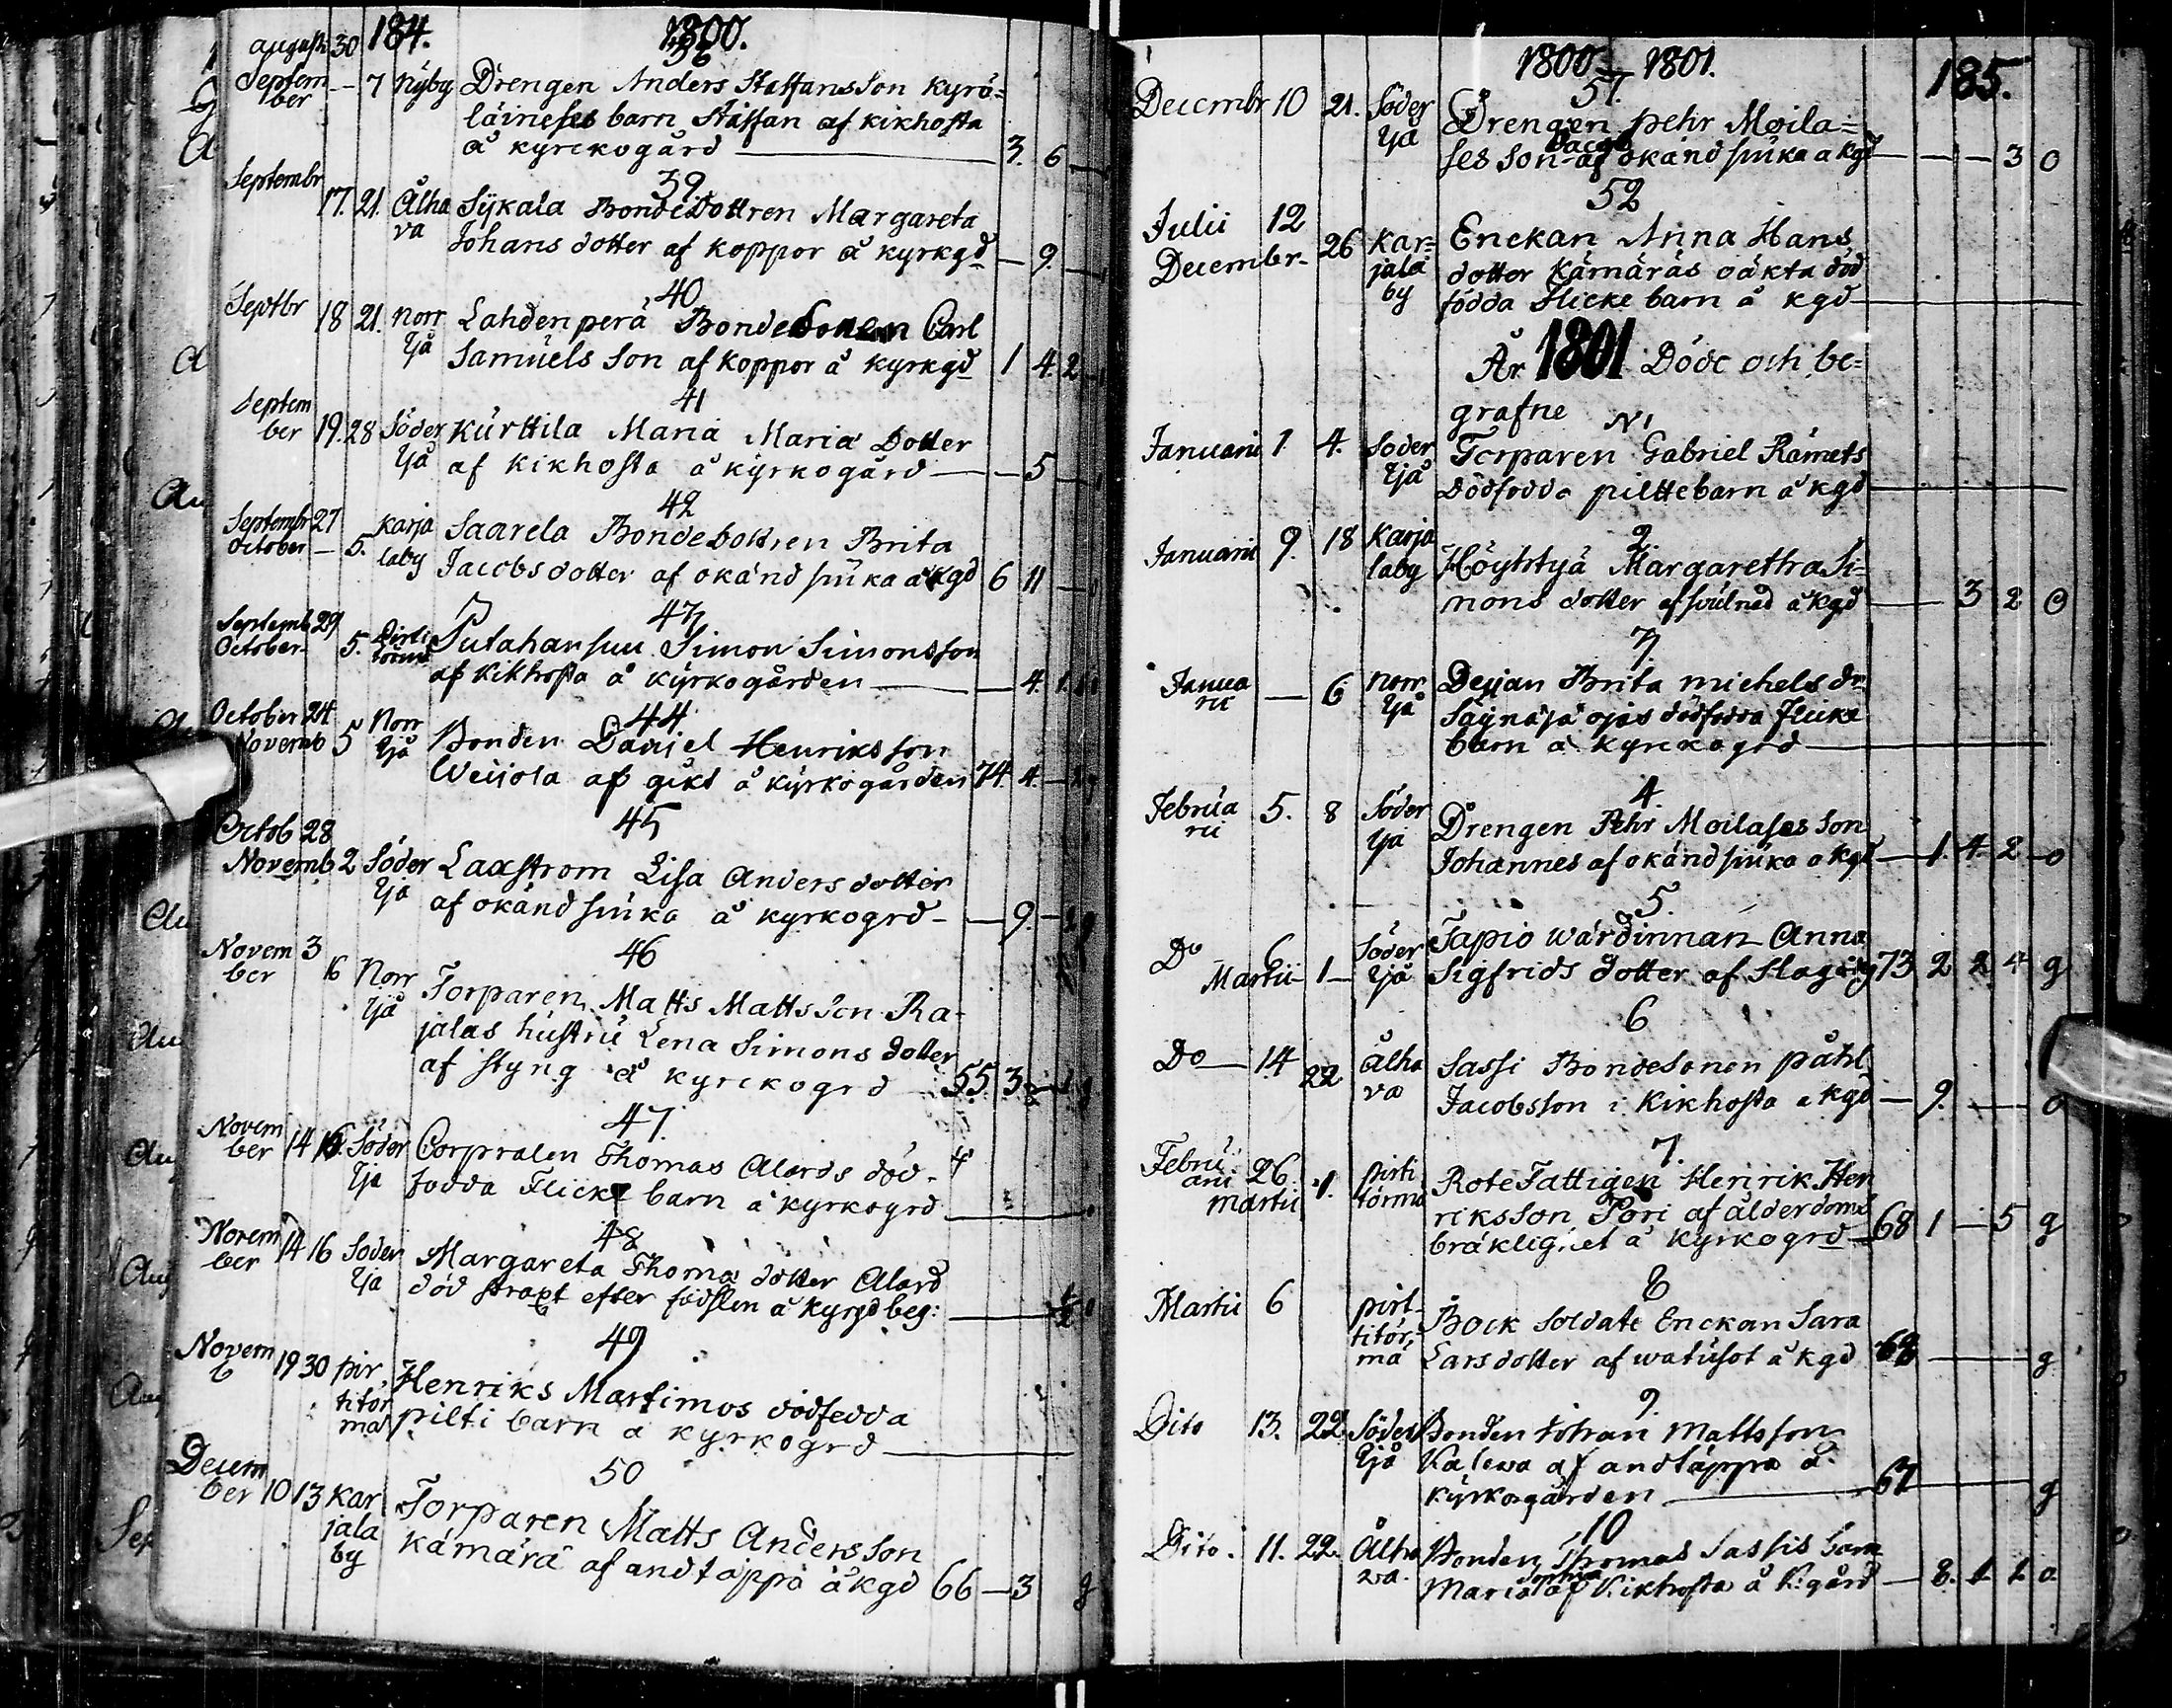 184. 1800.
august 30 38
Septem - 7 Nÿby Drengen Anders Staffansson Kyrö=
ber läineses barn Staffan af kikhosta
å kyrckogård 3. 6
Septembr 39
17. 21. Ålha Sÿkala Bondedottren Margareta
va Johans dotter af koppor å kyrkgd 9.
40
Septbr 18 21. Norr Lahdenperä Bondesonen Carl
Ijå Samuels Son af koppor å kyrkgd 1 4. 2
41
Septem
ber 19. 28 Söder Kurttila Maria Maria Dotter
Ijå af kikhosta å kÿrkogård 5
42
Septembr 27 Karja Saarela Bondedottren Brita
October - 5. laby Jacobs dotter af okänd siuka å kgd 6 11
43
Septemb 29
October 5. Pirti Putahansuu Simon Simonsson
törmä af kikhosta å kÿrkogården 4. 1.
October 24 44
Novemb 5 Norr Bonden Daniel Henriksson
Ijå Weijola af gikt å kÿrkogården 74. 4.
45
Octob 28
Novemb 2 Söder Laxstrom Lisa Anders dotter
Ijå af okänd siuka å kyrkogrd 9.
46
Novem 3
ber 16 Norr Torparen Matts Mattsson Ra-
Ijå jalas hustru Lena Simons dotter
af styng å kyrckogrd 55 3
47.
Novem
ber 14 16. Söder Corpralen Thomas Alards död-
Ijå fodda Flicke barn å kyrkogrd
48
Novem
ber 14 16 Söder Margareta Thoma dotter Alard
Ijå död straxt efter födslen å kyrgd beg: 1/2
49
Novem
b 19 30 pir Henriks Martimos dödfedda
titör pilti barn å kyrkogrd
mä
50
Decem
ber 10 13 Kar Torparen Matts Andersson
jala Kämärä af andtäppa å kgd 66 - 3 g
by
1800 - 1801. 185.
51.
Decembr 10 21. Söder Drengen pehr Moila=
Ijå ses son Jacob af okänd siuka å kgd 3 o
52
Julii 12
Decembr 26 Kar= Enckan Anna Hans
jala dotter Kämäräs oäkta död
by födda Flicke barn å kgd
År 1801 Döde och be=
grafne
N1
Januarii 1. 4. Söder Torparen Gabriel Rämets
Ijå Dödfödda piltte barn å kgd
2.
Januarii 9. 18 Karja Höyhtyä Margarethra Si=
laby mons dotter af svulnad å kgd 3 2 o
3
Janua - 6 Norr Deijan Brita michels dr.
rii Ijå Säynäjä ojas dödfodda flicke
barn å kyrckogrd
4.
Februa 5. 8 Söder Drengen Pehr Moilases Son
rii Ijå Johannes af okänd siuka å kgd 1. 4. 2 o
5.
Do 6 Söder Tapio wärdinnan Anna
Martii 1 Ijå Sigfrids dotter af Slag 73 2 2 4 g
6
Do 14 22 Ålha Sassi Bondesonen påhl
va Jacobsson i Kikhosta å kgd 9. o
7.
Febru
arii 26 pirti Rote Fattigen Henrik Hen
martii 1. törmä riksson Pori af ålderdoms
bräklighet å kyrkogrd 68 1 - 5 g
8
Martii 6 pirt- Bock Soldate Enckan Sara
titör= Larsdotter af watusot å kgd 68 g
mä
9.
Dito 13. 22 Söder Bonden Johan Mattsson
Ijå Kalewa af andtäppa å
Kÿrkogården 67 g
10
Dito. 11. 22. Ålha Bonden Thomas Sassis barn
wa. Maria Sophia af Kikhosta å K:gård 8. 1 1. o